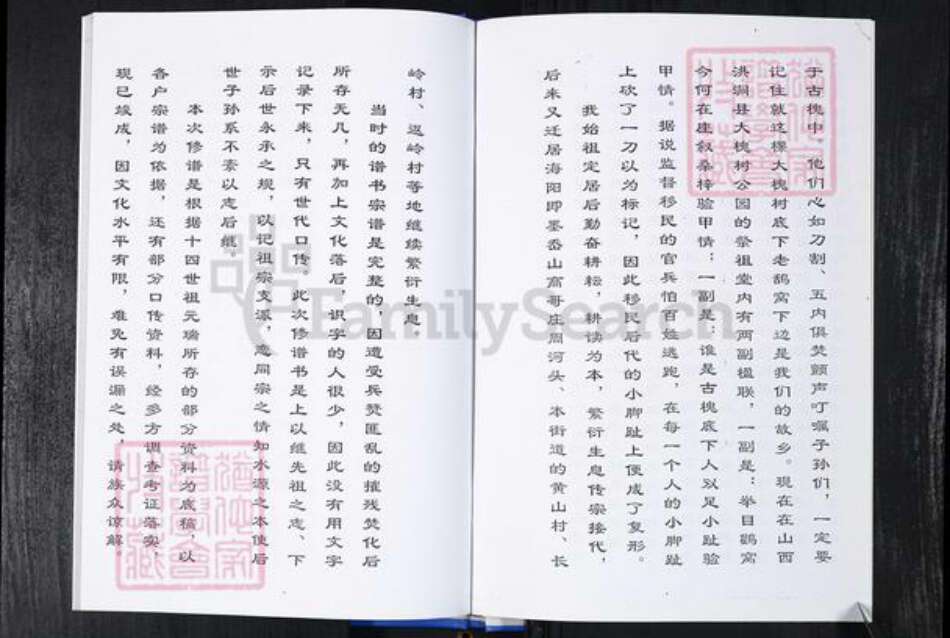 于古槐中，他们心如刀割、五内俱焚颤声叮嘱子孙们，一定要
记住就这棵大槐树底下老鸹窝下边是我们的故乡。现在在山西
洪洞县大槐树公园的祭祖堂内有两副楹联，一副是：举目鹳窝
今何在座叙桑梓验甲情；一副是：谁是古槐底下人双足小趾验
甲情。据说监督移民的官兵怕百姓逃跑，在每一个人的小脚趾
上砍了一刀以为标记，因此移民后代的小脚趾上便成了复形。
我始祖定居后勤奋耕耘，耕读为本，繁衍生息传宗接代，
后来又迁居海阳即墨岙山高哥庄周河头、本街道的黄山村、长
岭村、迟岭村等地继续繁衍生息
当时的谱书宗谱是完整的，因遭受兵焚匪乱的摧残焚化后
所存无几，再加上文化落后，识字的人很少，因此没有用文字
记录下来，只有世代口传，此次修谱书是上以继先祖之志、下
示后世永承之规，以记祖宗支派，悉同宗之情知水源之本使后
世子孙系不紊以志后继。
本次修谱是根据十四世祖元瑞所存的部分资料为底稿，以
各户宗谱为依据，还有部分口传资料，经多方调查考证落实，
现已竣成，因文化水平有限，难免有误漏之处，请族众谅解。
FamilySearch